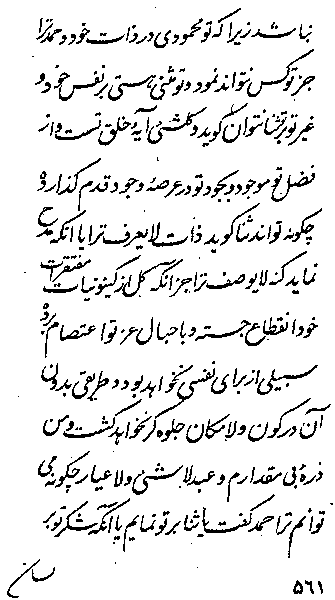 نباشد زیرا که تو محمودی در ذات خود و حمد ترا
جز تو کس نتواند نمود و تو مثنی هستی بر نفس خود و
غیر تو بر تو ثنا نتوان گوید و کلشئی آیهٔ خلق تست و از
فضل تو موجود و بجود تو در عرصهٔ وجود قدم گذارده
چگونه تواند ثنا گوید ذات لایعرف ترا یا آنکه مدح
نماید کنه لایوصف ترا جز آنکه کل از کینونیات مفتقرات
خود انقطاع جسته و باحبال عز تو اعتصام برده
سبیلی از برای نفسی نخواهد بود و طریقی بدون
آن در کون و لامکان جلوه گر نخواهد گشت و من
ذرهٔ بی مقدارم و عبد لاشئی و لا عیار چگونه می
توانم ترا حمد گفت یا ثنا بر تو نمایم یا آنکه شکر تو بر
لسان
۵۶۱